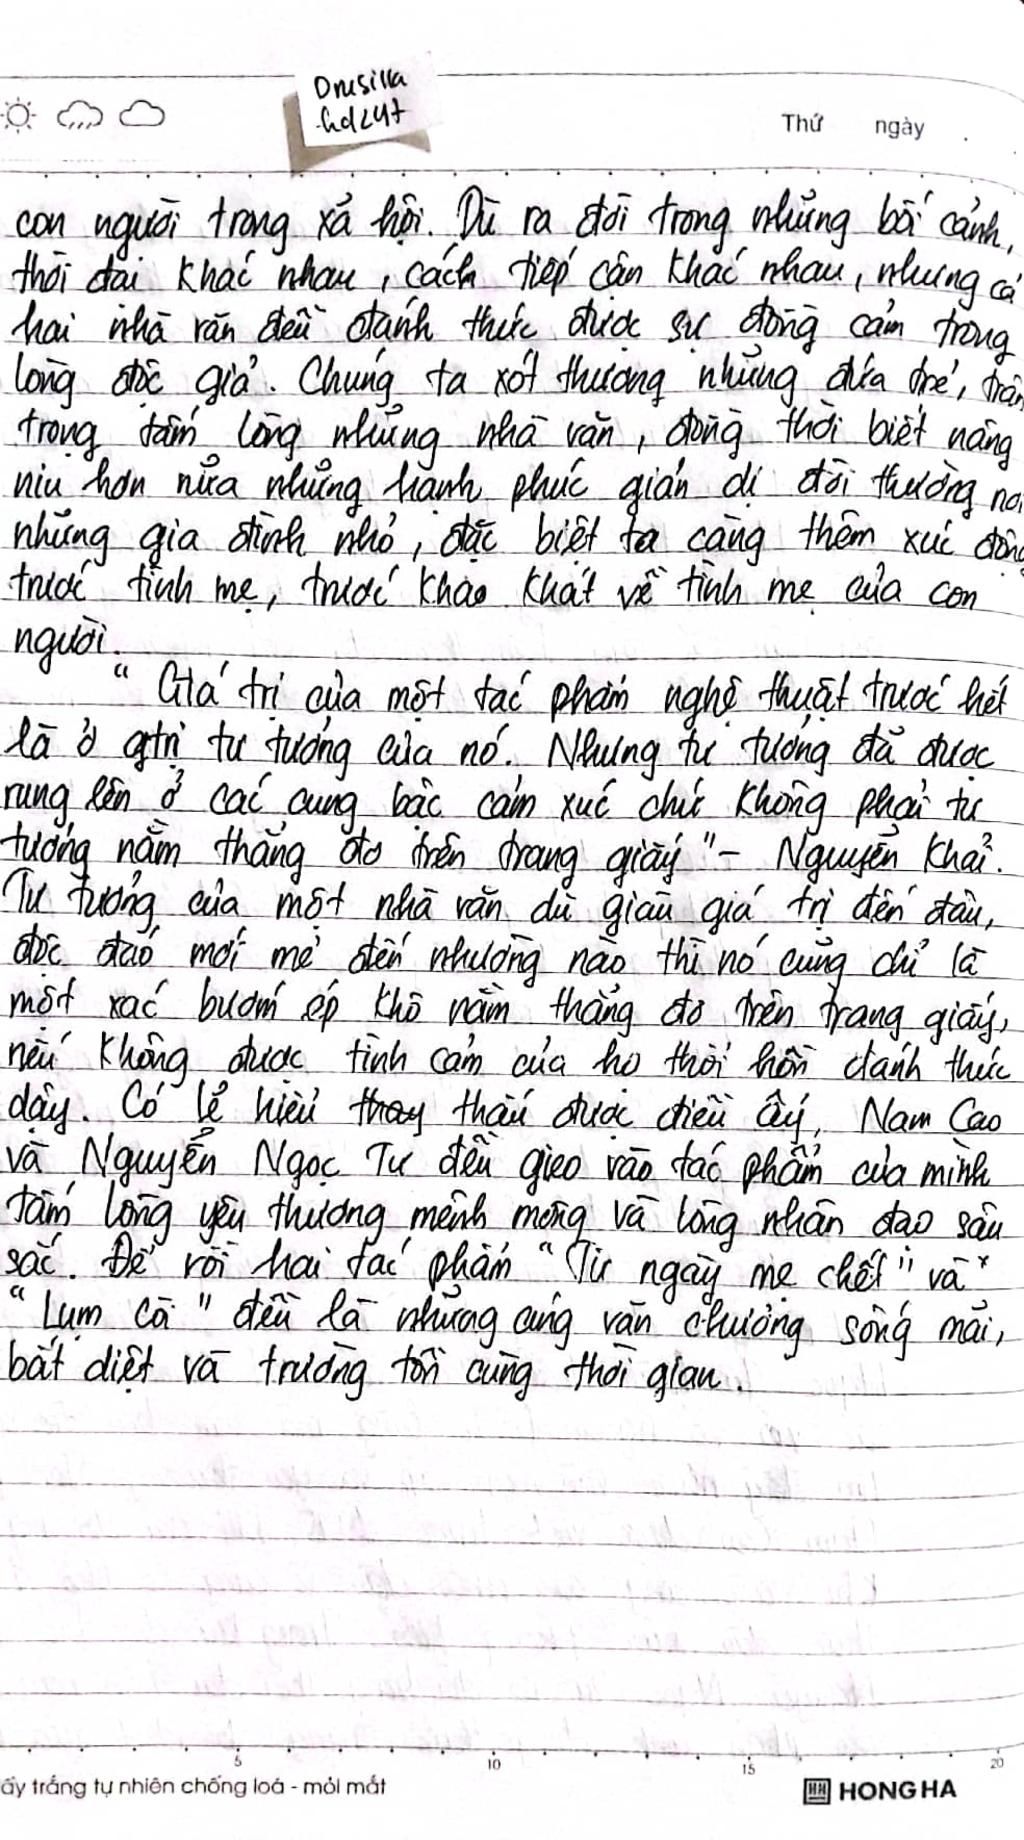 Drusilla
-hd247
Thứ ngày .
con người trong xã hội. Dù ra đời trong những bối cảnh,
thời đại khác nhau, cách tiếp cận khác nhau, nhưng cả
hai nhà văn đều đánh thức được sự đồng cảm trong
lòng độc giả. Chúng ta xót thương những đứa trẻ, trân
trọng tấm lòng những nhà văn, đồng thời biết nâng
niu hơn nữa những hạnh phúc giản dị đời thường nơi
những gia đình nhỏ, đặc biệt ta càng thêm xúc động
trước tình mẹ, trước khao khát về tình mẹ của con
người.
"Giá trị của một tác phẩm nghệ thuật trước hết
là ở gtrị tư tưởng của nó. Nhưng tư tưởng đã được
rung lên ở các cung bậc cảm xúc chứ không phải tư
tưởng nằm thẳng đơ trên trang giấy" - Nguyễn Khải.
Tư tưởng của một nhà văn dù giàu giá trị đến đâu,
độc đáo mới mẻ đến nhường nào thì nó cũng chỉ là
một xác bướm ép khô nằm thẳng đơ trên trang giấy,
nếu không được tình cảm của họ thổi hồn đánh thức
dậy. Có lẽ hiểu thay thấu được điều ấy, Nam Cao
và Nguyễn Ngọc Tư đều gieo vào tác phẩm của mình
tấm lòng yêu thương mênh mông và lòng nhân đạo sâu
sắc. Để rồi hai tác phẩm "Từ ngày mẹ chết" và
"Lụm Còi" đều là những áng văn chương sống mãi,
bất diệt và trường tồn cùng thời gian.
5 10 15 20
ấy trắng tự nhiên chống loá - mỏi mắt
HH HONG HA